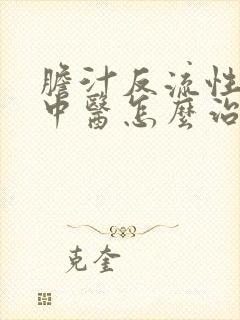 膽汁反流性
中醫怎麼治
克奎